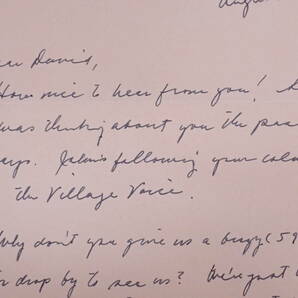 Dear David,
How nice to hear from you!
was thinking about you the pas
ays. John's following your colu
the Village Voice.
Why don't you give us a buzz (59
or drop by to see us? We're just